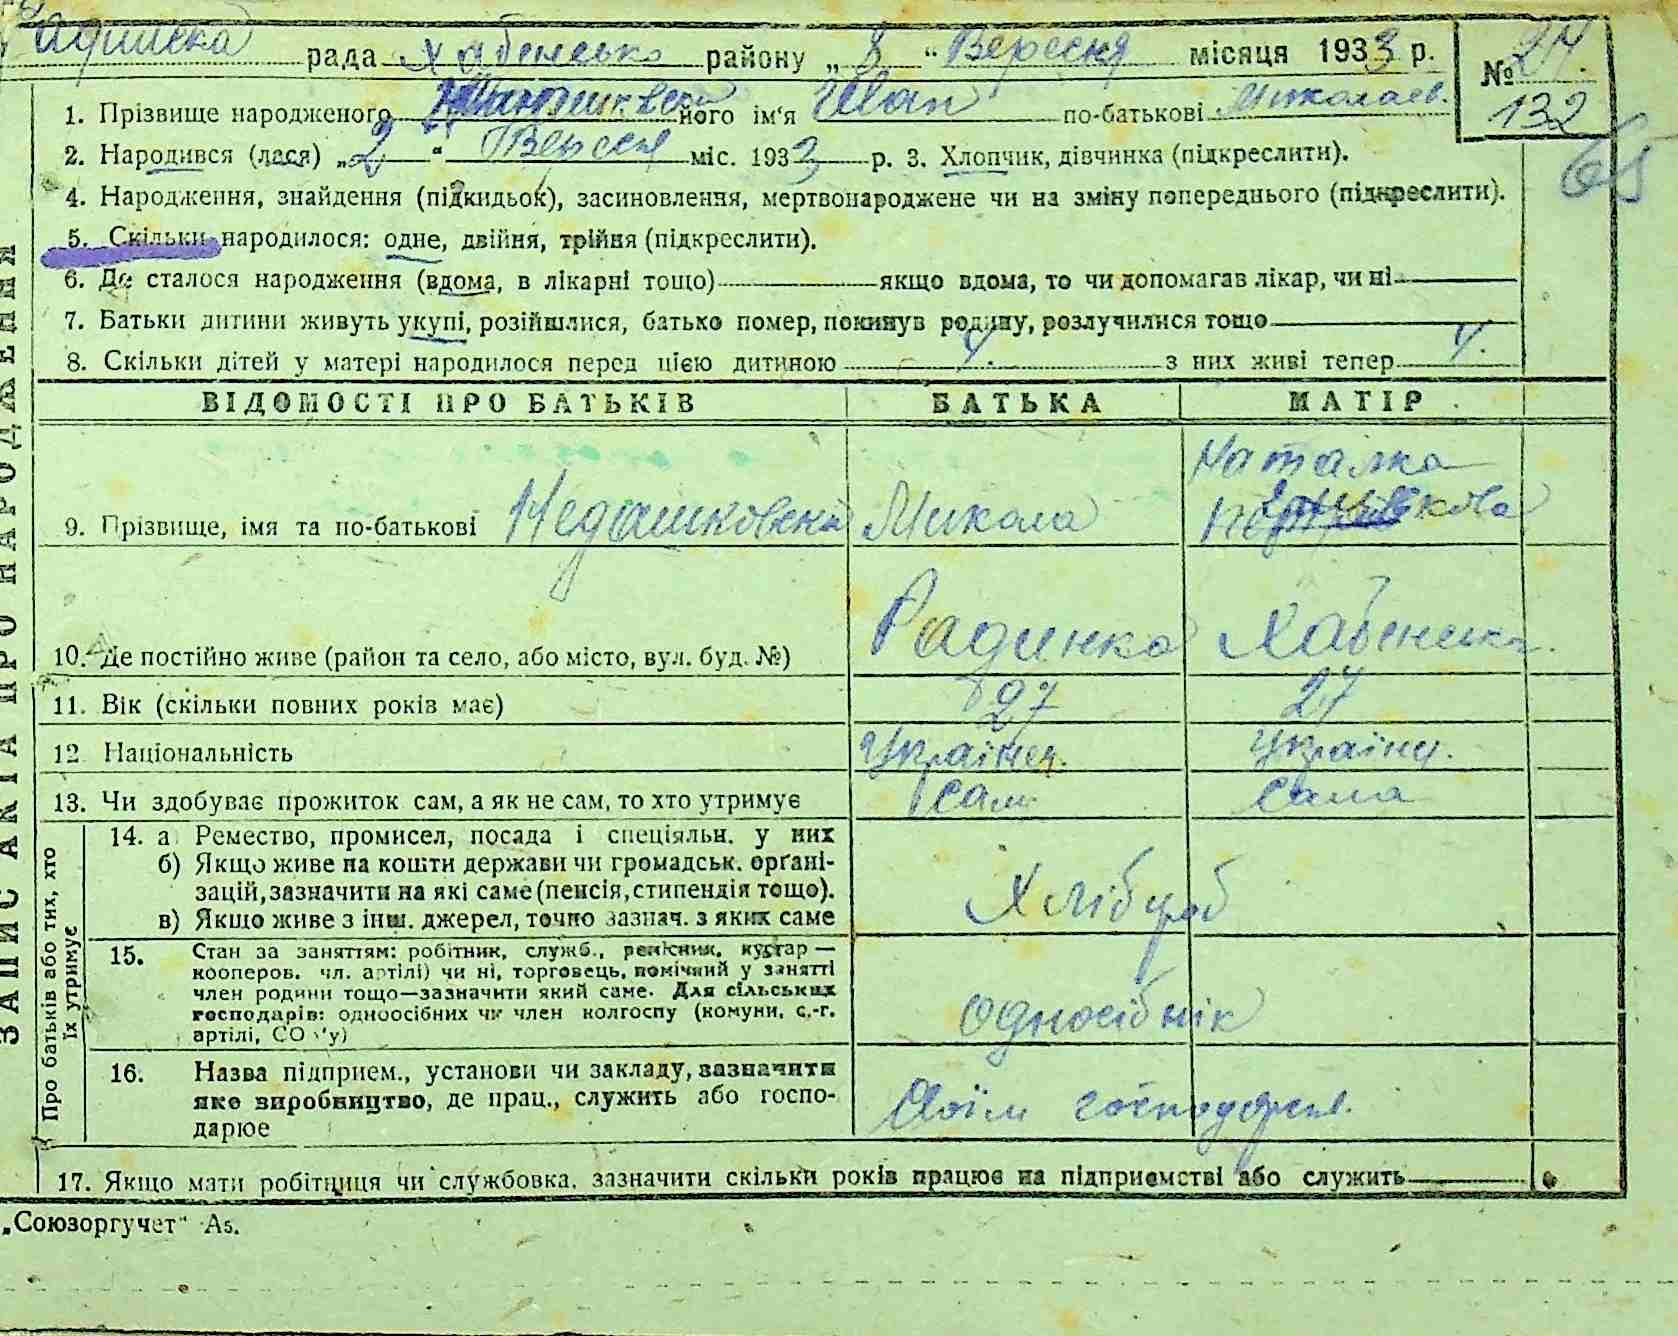 рада Хабенсько району „ 8 “ Вересня місяця 1933 р.
№ 24.
132
65
1. Прізвище народженого його ім'я Іван по-батькові Миколаєв.
2. Народився (лася) „2“ Вересня міс. 1933 р. 3. Хлопчик, дівчинка (підкреслити).
4. Народження, знайдення (підкидьок), засиновлення, мертвонароджене чи на зміну попереднього (підкреслити).
5. Скільки народилося: одне, двійня, трійня (підкреслити).
6. Де сталося народження (вдома, в лікарні тощо) якщо вдома, то чи допомагав лікар, чи ні
7. Батьки дитини живуть укупі, розійшлися, батько помер, покинув родину, розлучилися тощо
8. Скільки дітей у матері народилося перед цією дитиною 4. з них живі тепер 4.
ВІДОМОСТІ ПРО БАТЬКІВ БАТЬКА МАТІР
9. Прізвище, імя та по-батькові Недашковськ Микола Наталка
10. Де постійно живе (район та село, або місто, вул. буд. №) Радинка Хабенськ.
11. Вік (скільки повних років має) 27 27
12 Національність Українец. Україн.
13. Чи здобуває прожиток сам, а як не сам, то хто утримує сам сама
14. а) Ремество, промисел, посада і спеціяльн. у них
б) Якщо живе на кошти держави чи громадськ. орґані-
зацій, зазначити на які саме (пенсія, стипендія тощо).
в) Якщо живе з інш. джерел, точно зазнач. з яких саме
Хлібороб
15. Стан за заняттям: робітник, служб., ремісник, кустар —
кооперов. чл. артілі) чи ні, торговець, помічний у занятті
член родини тощо—зазначити який саме. Для сільських
господарів: одноосібних чи член колгоспу (комуни, с.-г.
артілі, СО у)
односібнік
16. Назва підприєм., установи чи закладу, зазначити
яке виробництво, де прац., служить або госпо-
дарює
Своїм господарст.
17. Якщо мати робітниця чи службовка, зазначити скільки років працює на підприємстві або служить
Про батьків або тих, хто
їх утримує
ЗАПИС АКТА ПРО НАРОДЖЕННЯ
„Союзоргучет“ А5.